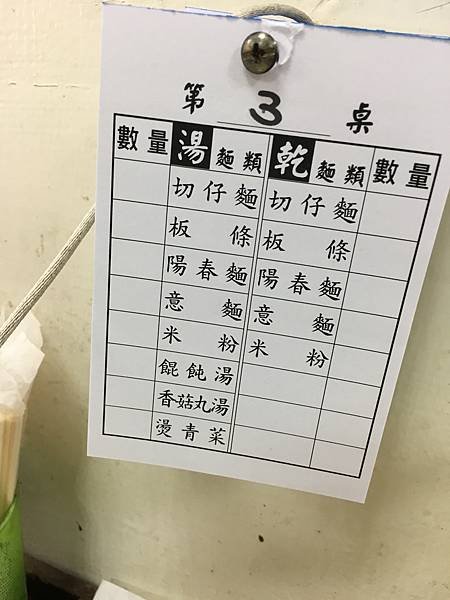 第 3 桌
數量 湯麵類 乾麵類 數量
切仔麵 切仔麵
板條 板條
陽春麵 陽春麵
意麵 意麵
米粉 米粉
餛飩湯
香菇丸湯
燙青菜